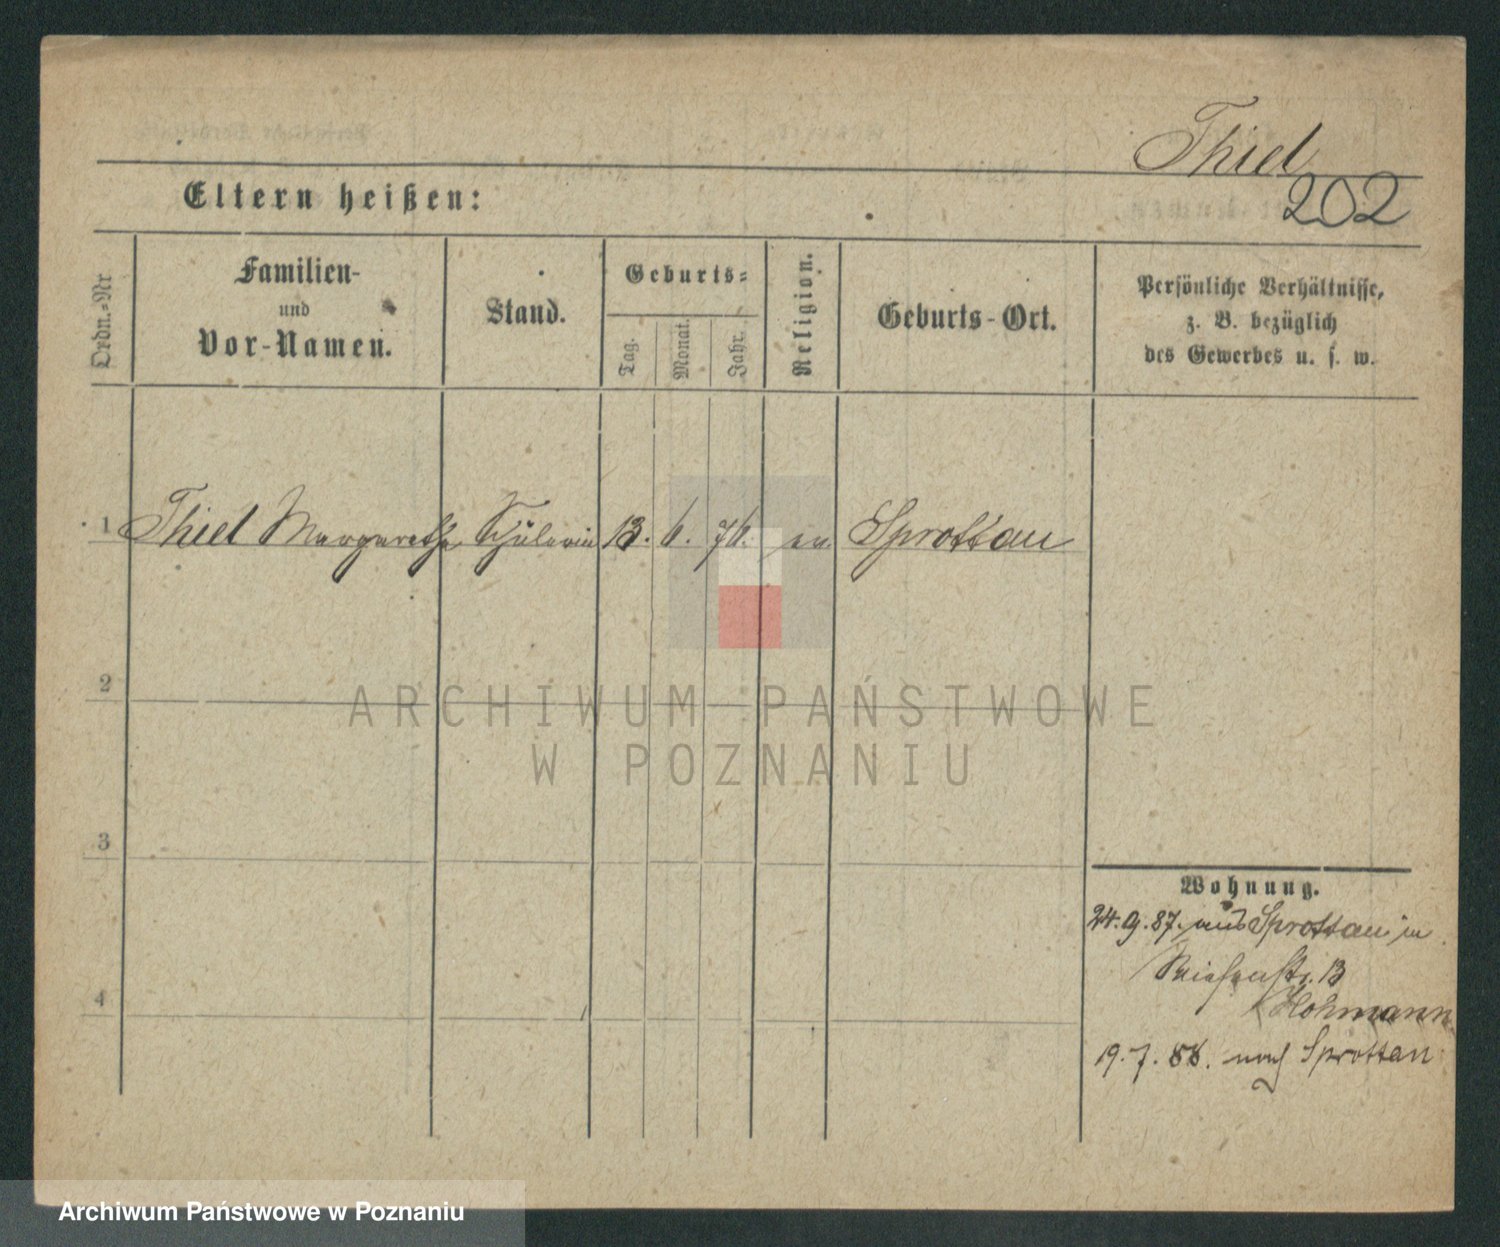 Thiel
202
Eltern heißen:
Ordn.-Nr
Familien-
und
Vor-Namen.
Stand.
Geburts-
Tag.
Monat.
Jahr.
Religion.
Geburts-Ort.
Persönliche Verhältnisse,
z. B. bezüglich
des Gewerbes u. s. w.
1 Thiel Margarethe Schülerin 13. 6. 76. ev. Sprottau
2
ARCHIWUM PAŃSTWOWE
W POZNANIU
3
Wohnung.
24.9.87. aus Sprottau in
Wiesenstr. 13
Hohmann
4
19.7.88. nach Sprottau
Archiwum Państwowe w Poznaniu